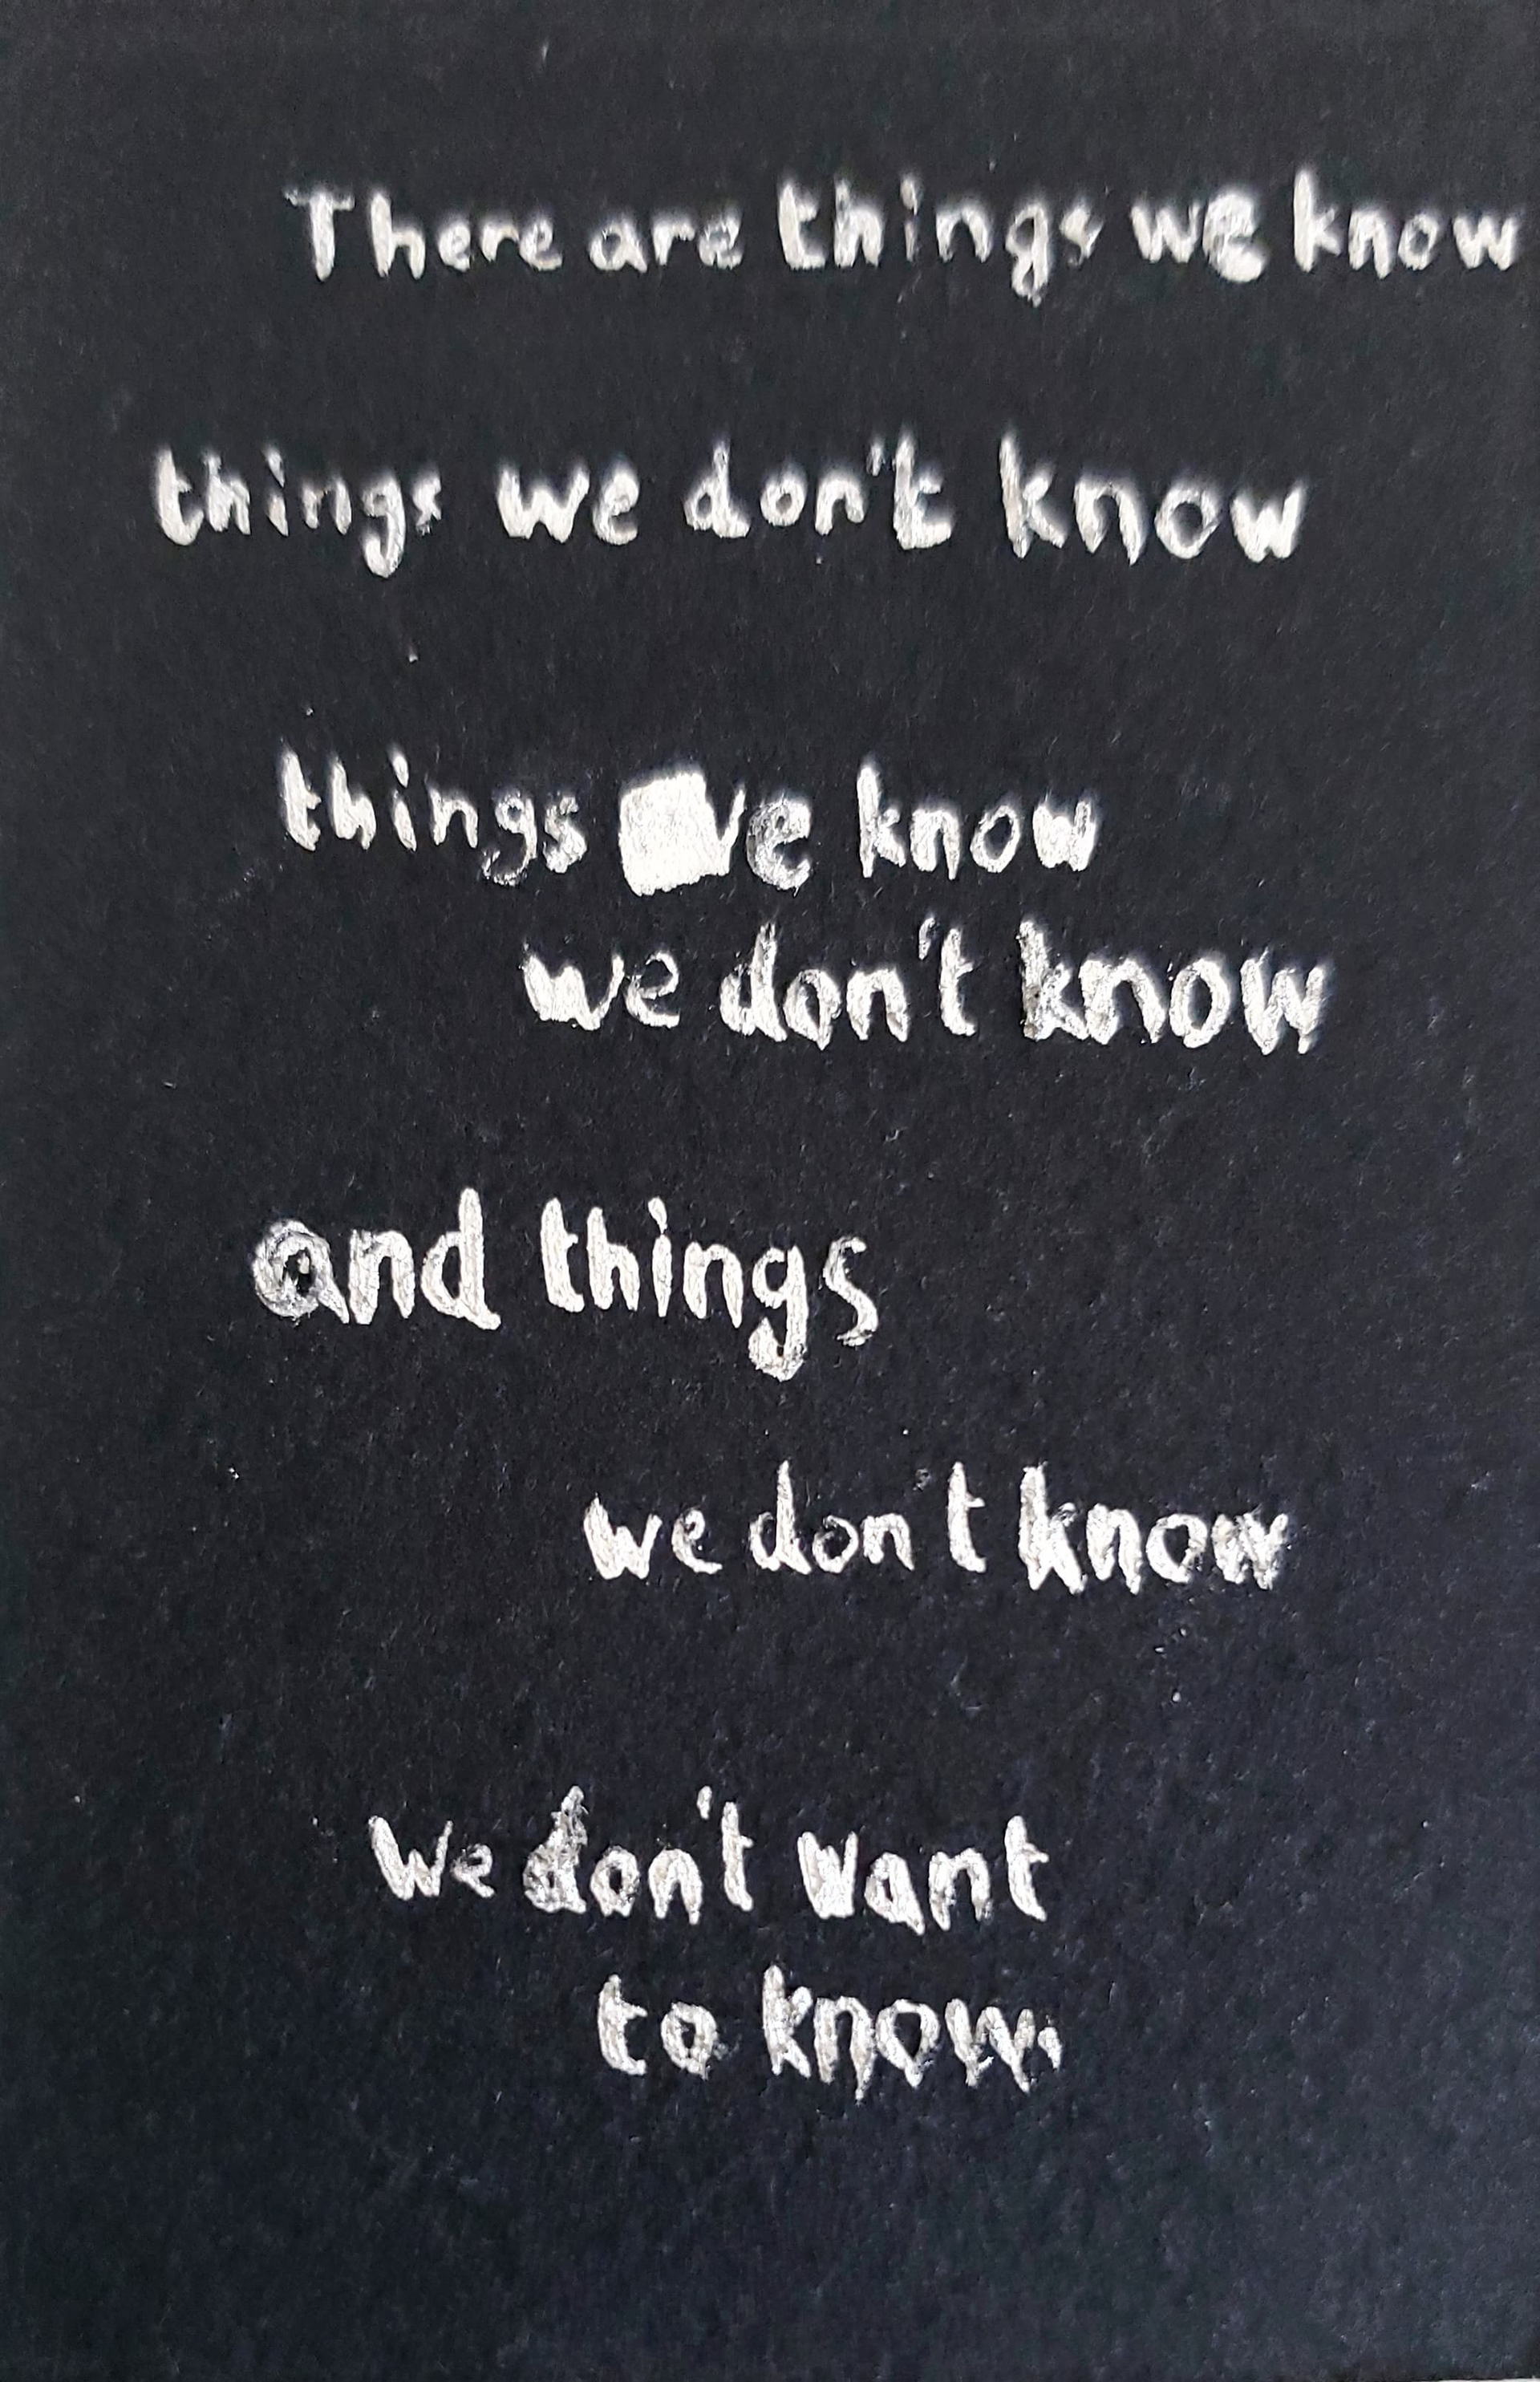 There are things we know
things we don't know
things we know
we don't know
and things
we don't know
we don't want
to know.